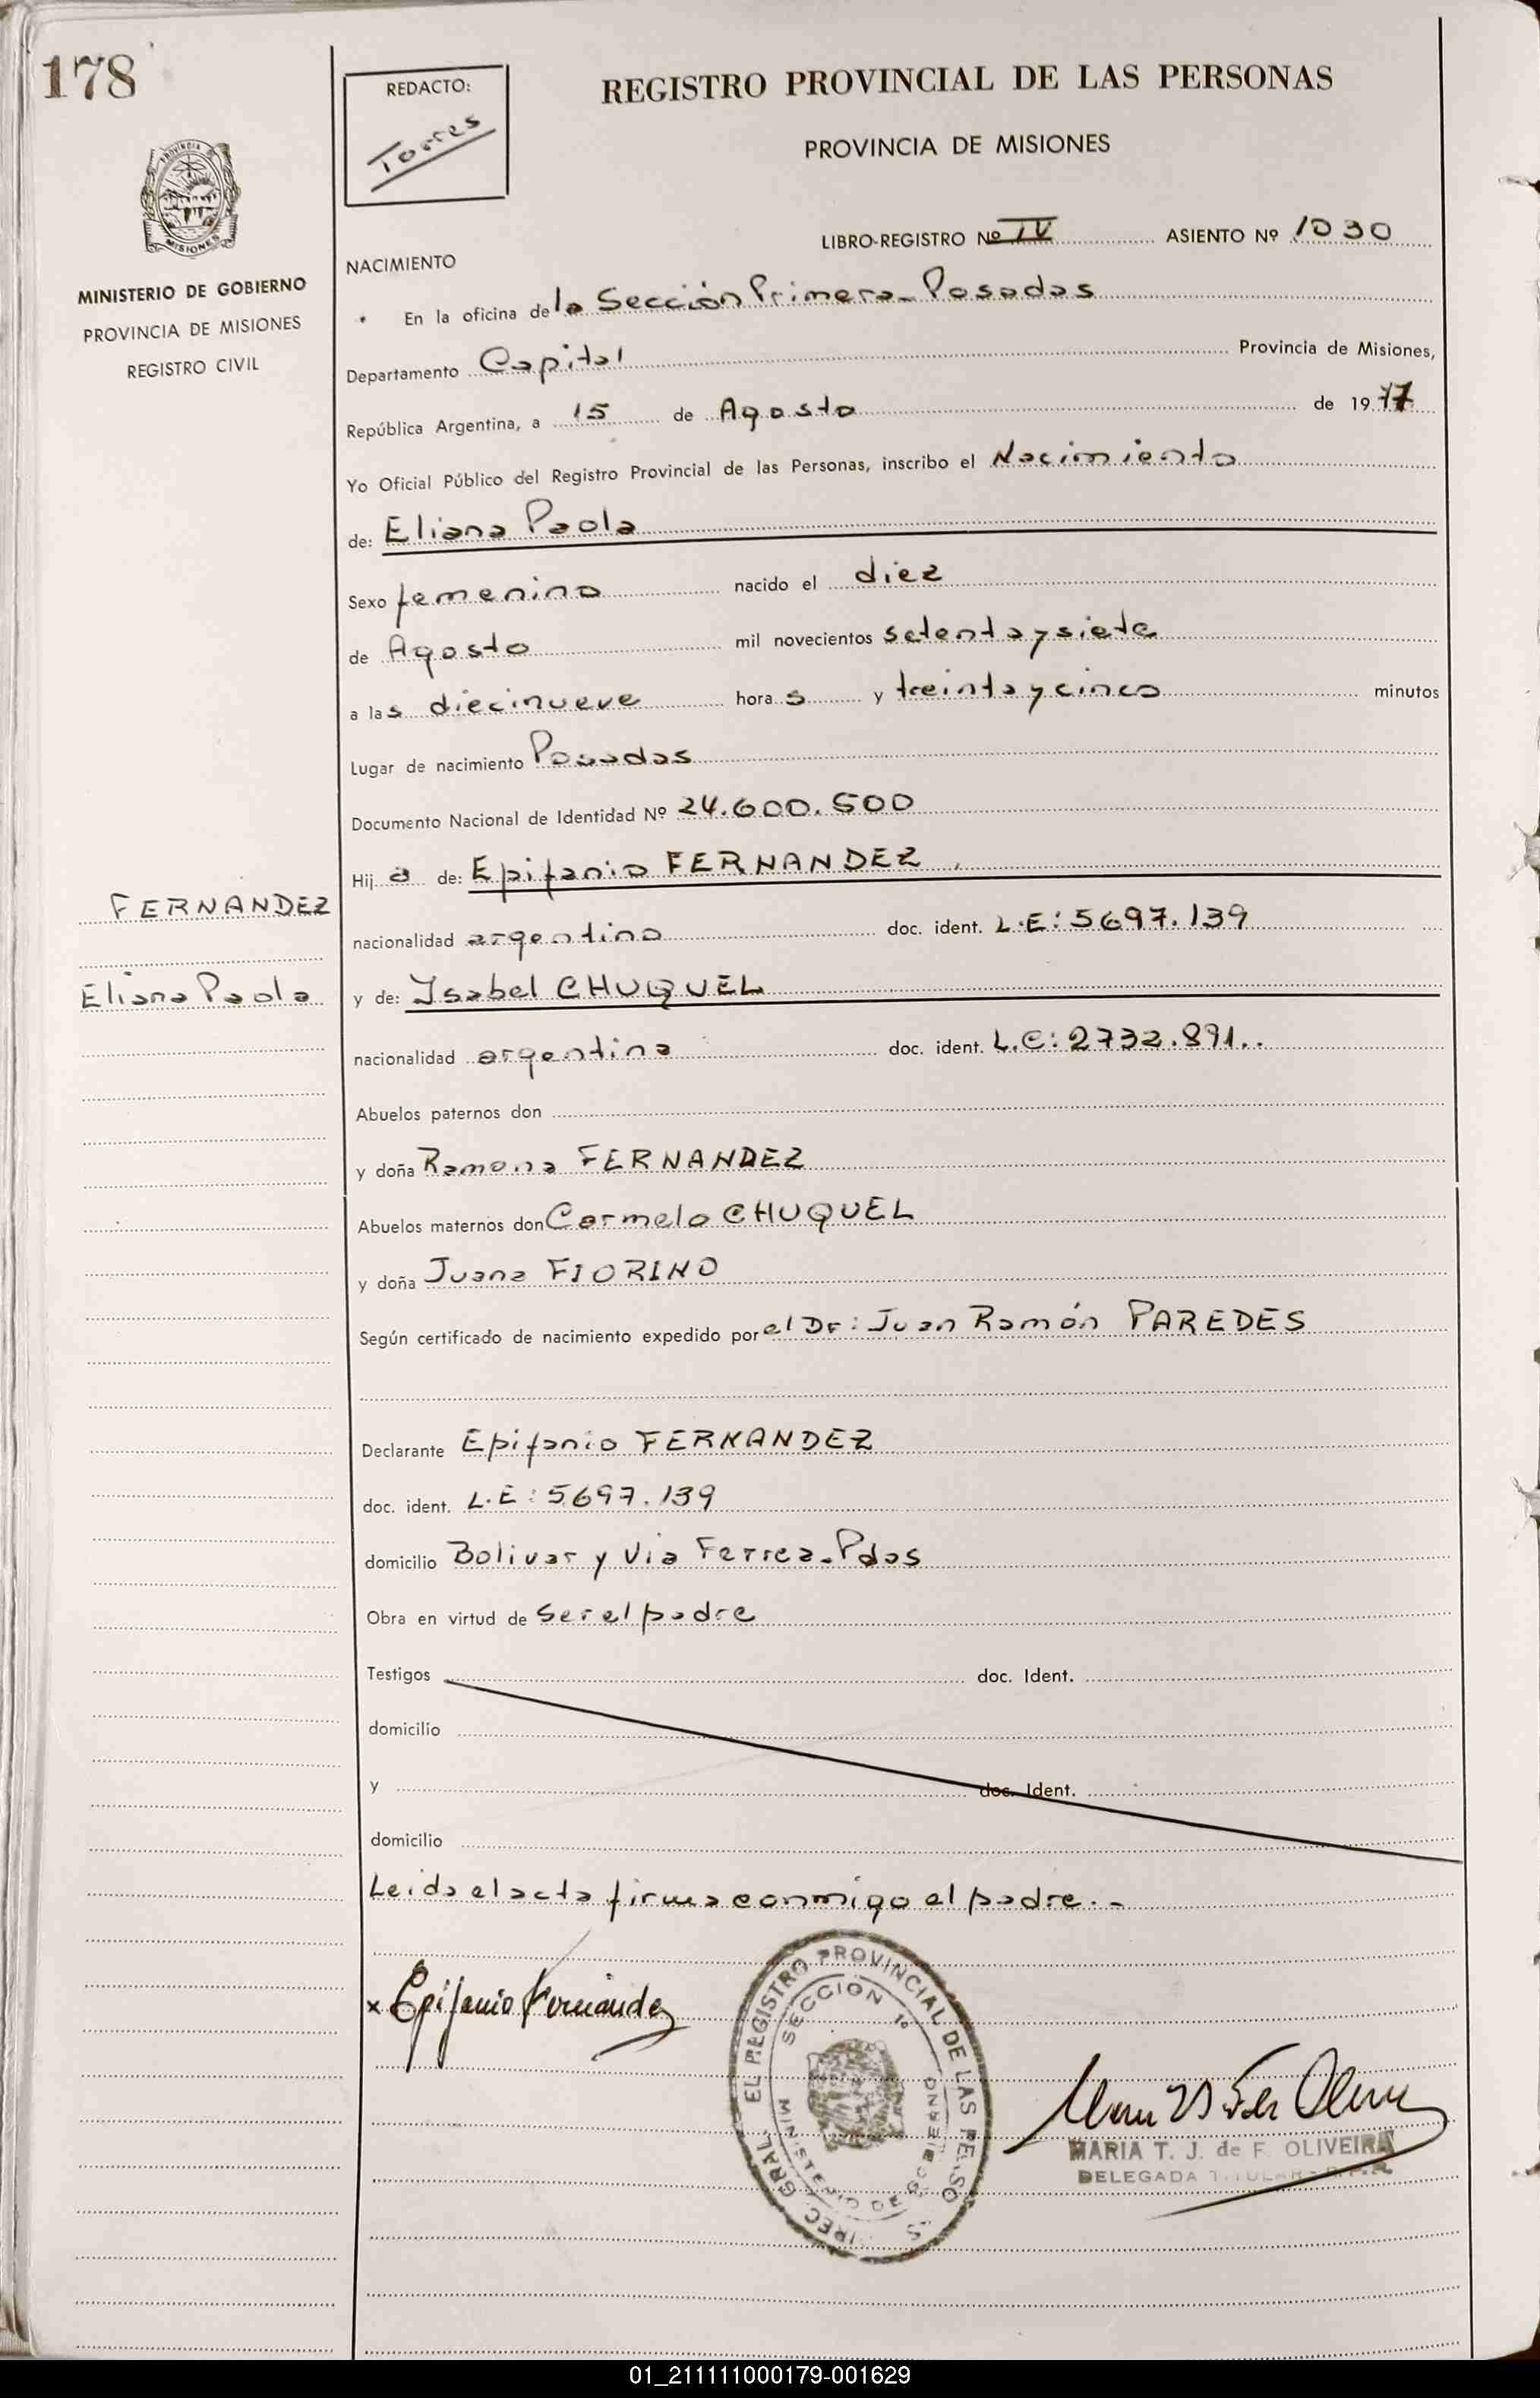 178
REDACTO:
Torres
REGISTRO PROVINCIAL DE LAS PERSONAS
PROVINCIA DE MISIONES
PROVINCIA
MISIONES
MINISTERIO DE GOBIERNO
PROVINCIA DE MISIONES
REGISTRO CIVIL
LIBRO-REGISTRO Nº IV ASIENTO Nº 1030
NACIMIENTO
En la oficina de la Sección Primera - Posadas
Departamento Capital Provincia de Misiones,
República Argentina, a 15 de Agosto de 1977
Yo Oficial Público del Registro Provincial de las Personas, inscribo el Nacimiento
de: Eliana Paola
Sexo femenino nacido el diez
de Agosto mil novecientos setenta y siete
a las diecinueve horas y treinta y cinco minutos
Lugar de nacimiento Posadas
Documento Nacional de Identidad Nº 24.600.500
Hija de: Epifanio FERNANDEZ
FERNANDEZ
nacionalidad argentino doc. ident. L.E: 5697.139
Eliana Paola
y de: Ysabel CHUQUEL
nacionalidad argentina doc. ident. L.C: 2732.891..
Abuelos paternos don
y doña Ramona FERNANDEZ
Abuelos maternos don Carmelo CHUQUEL
y doña Juana FIORINO
Según certificado de nacimiento expedido por el Dr: Juan Ramón PAREDES
Declarante Epifanio FERNANDEZ
doc. ident. L.E: 5697.139
domicilio Bolivar y Via Ferrea - Pdas
Obra en virtud de ser el padre
Testigos doc. Ident.
domicilio
y doc. Ident.
domicilio
Leida el acta firma conmigo el padre. -
x Epifanio Fernández
EL REGISTRO PROVINCIAL DE LAS PERSO S
DIREC. GRAL.
SECCION 1º
MINISTERIO DE GOBIERNO
MARIA T. J. de F. OLIVEIRA
DELEGADA TITULAR - R.P.P.
01_211111000179-001629